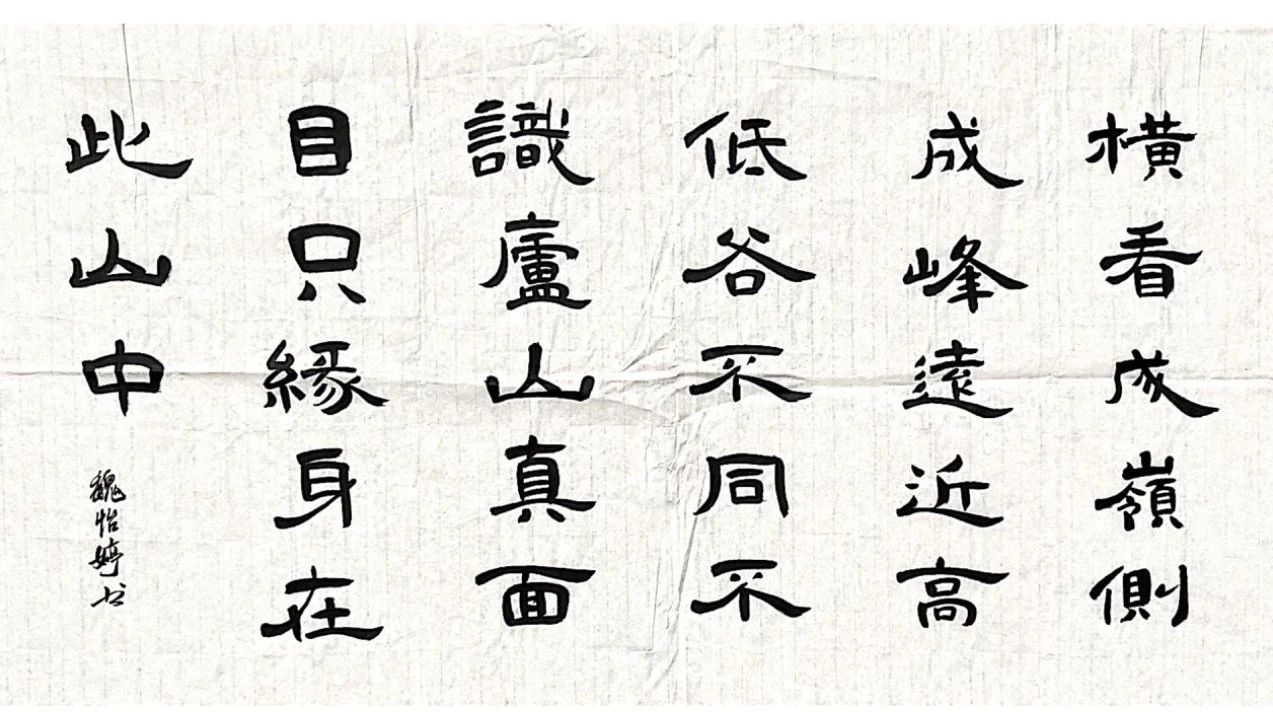 橫看成嶺側
成峰遠近高
低谷不同不
識廬山真面
目只緣身在
此山中
魏怡婷书